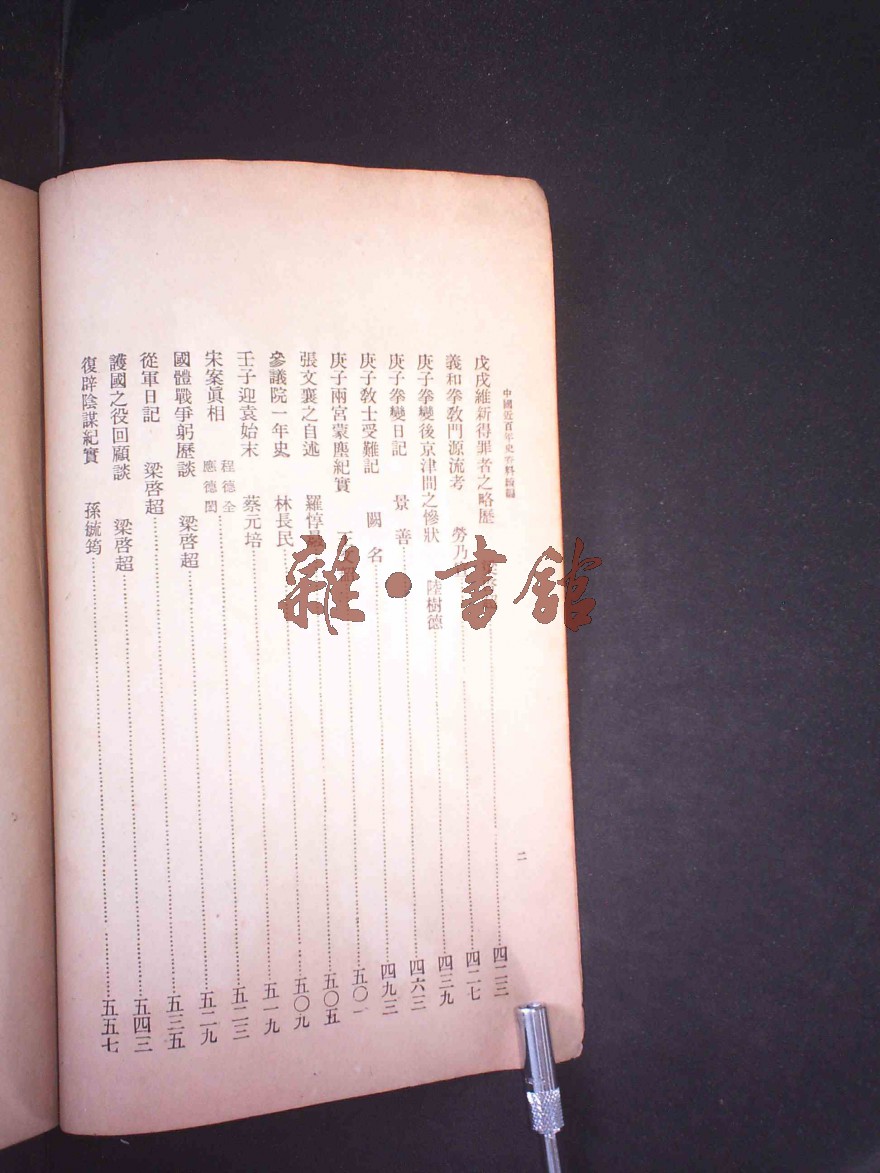 中國近百年史資料續編
二
戊戌維新得罪者之略歷……四二三
義和拳教門源流考 勞乃……四二七
庚子拳變後京津間之慘狀 陸樹德……四三九
庚子拳變日記 景善……四六三
庚子教士受難記 闕名……四九三
庚子兩宮蒙塵紀實……五〇一
張文襄之自述 羅惇……五〇五
參議院一年史 林長民……五〇九
壬子迎袁始末 蔡元培……五一九
宋案眞相 程德全 應德閎……五二三
國體戰爭躬歷談 梁啓超……五二九
從軍日記 梁啓超……五三五
護國之役回顧談 梁啓超……五四三
復辟陰謀紀實 孫毓筠……五五七
雜·書館